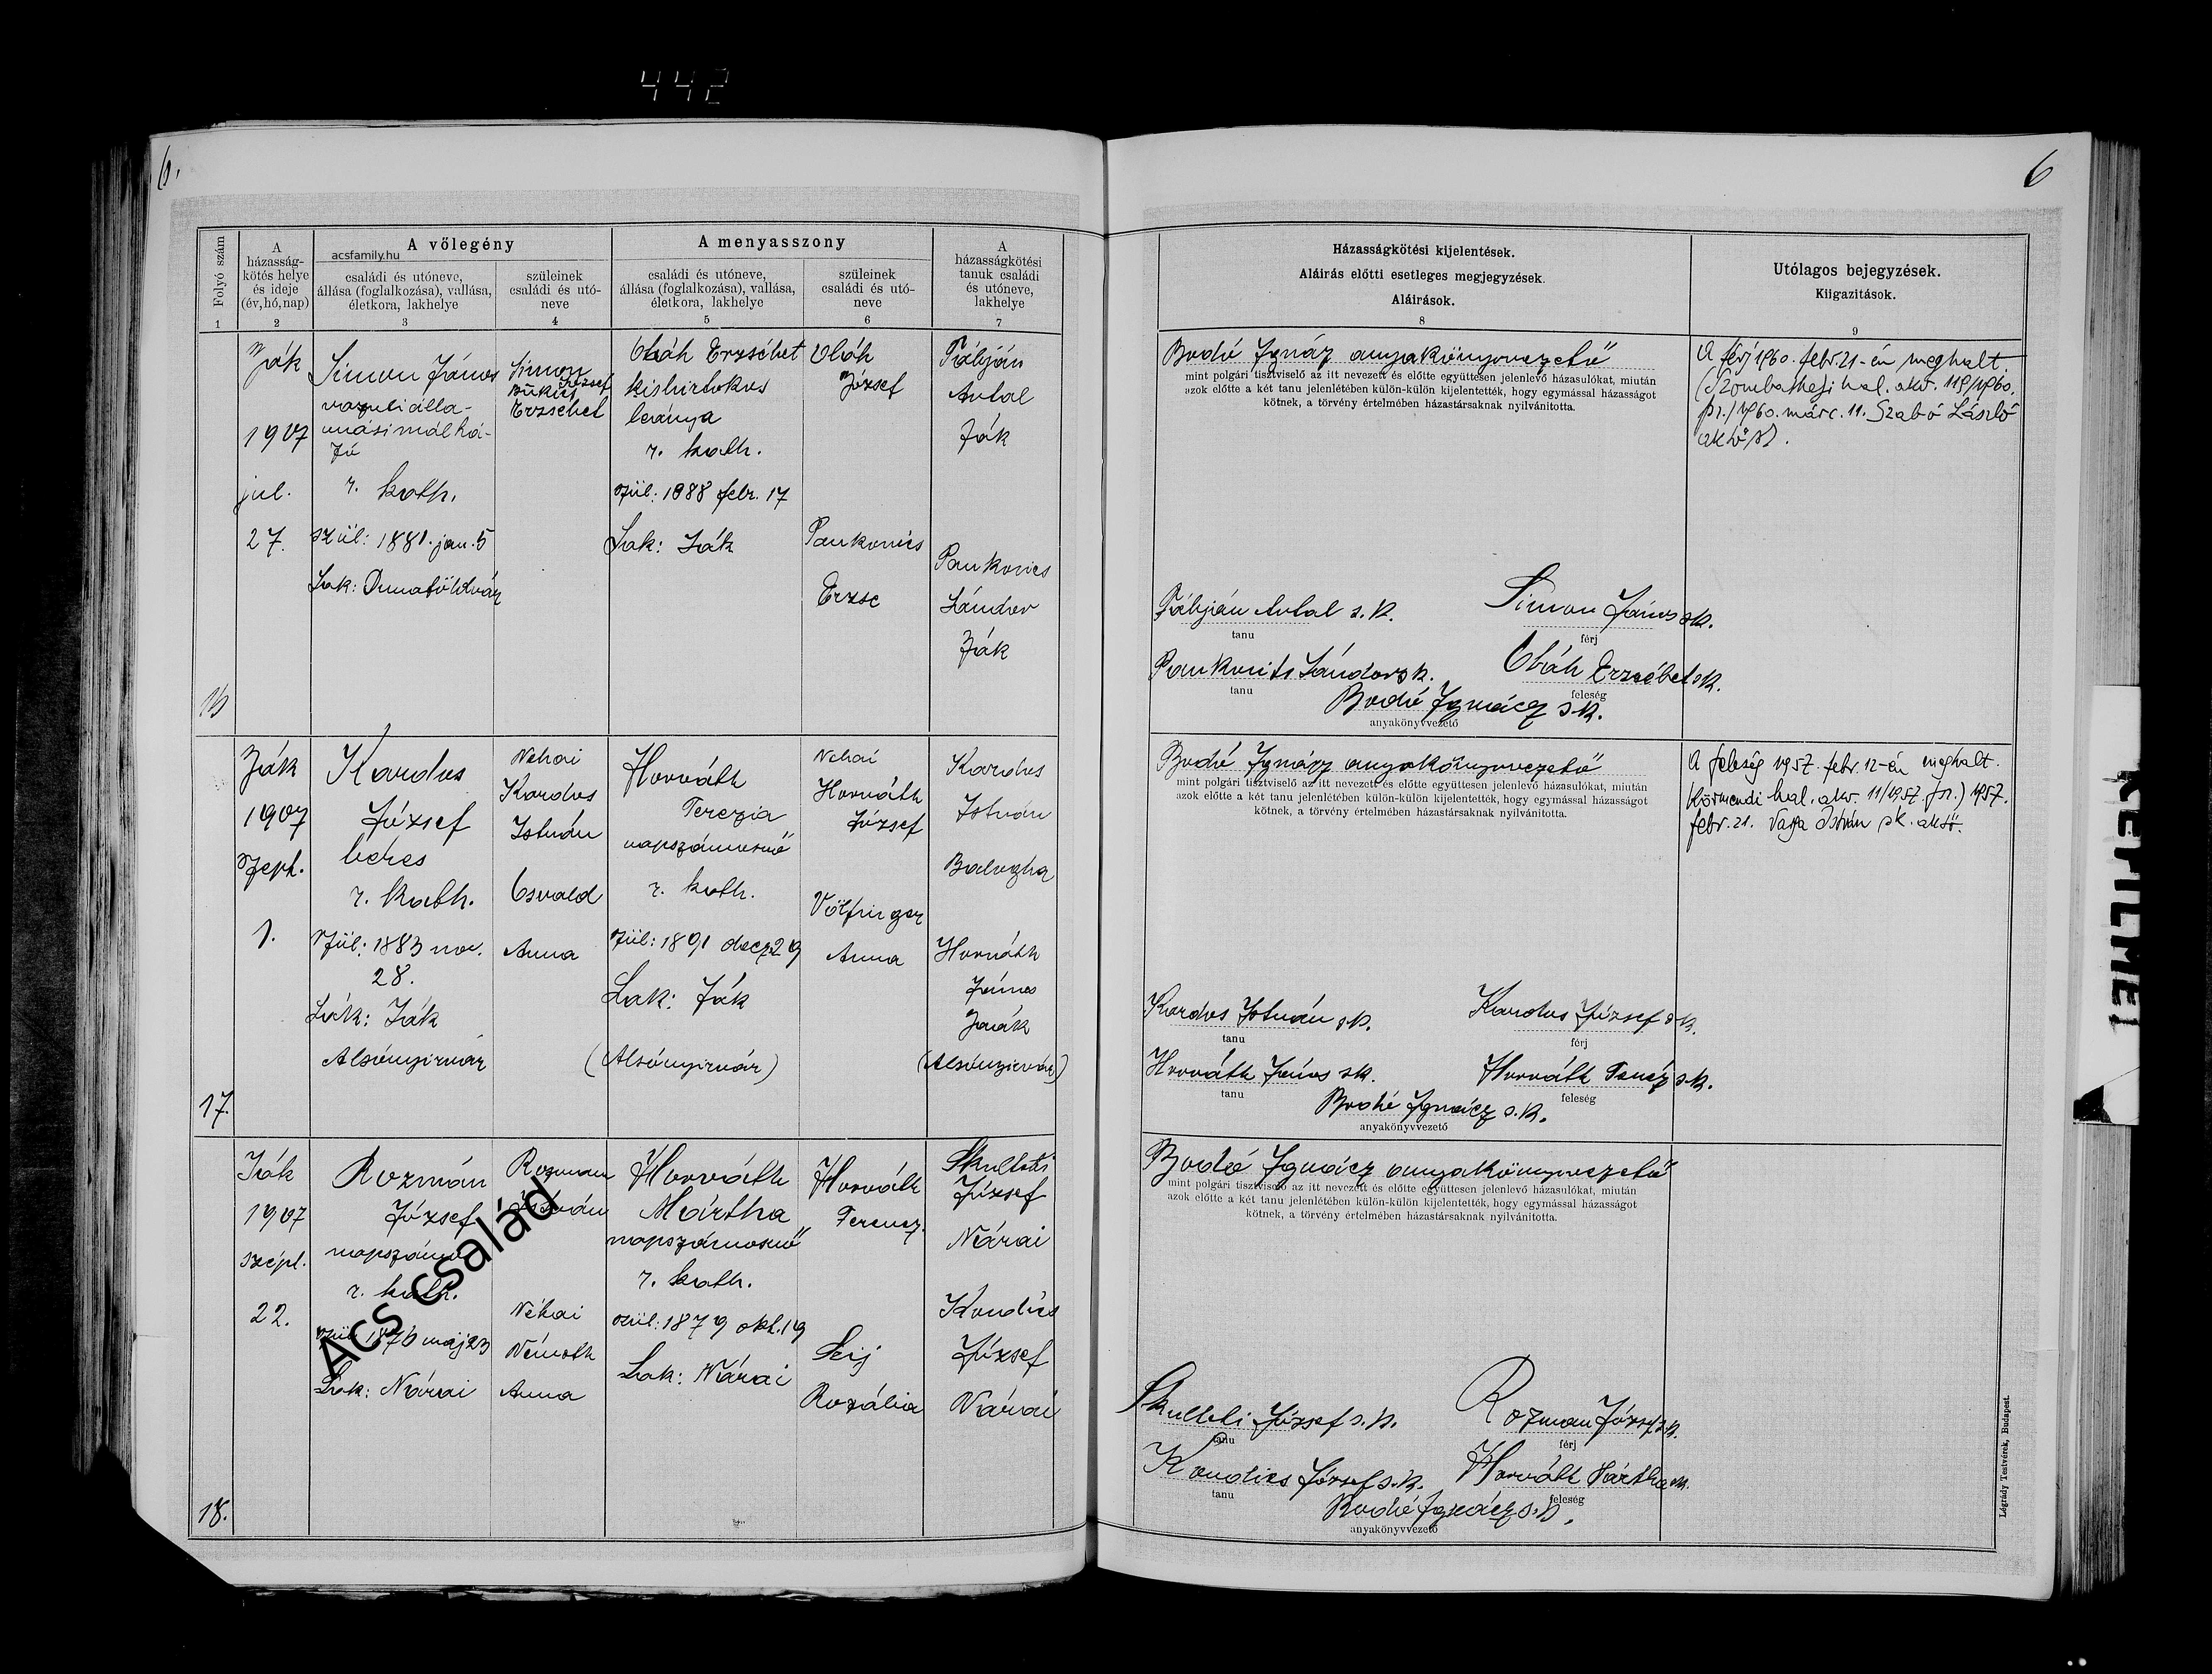 442
6.
6
Folyó szám
A
házasság-
kötés helye
és ideje
(év, hó, nap)
A vőlegény
acsfamily.hu
családi és utóneve,
állása (foglalkozása), vallása,
életkora, lakhelye
szüleinek
családi és utó-
neve
A menyasszony
családi és utóneve,
állása (foglalkozása), vallása,
életkora, lakhelye
szüleinek
családi és utó-
neve
A
házasságkötési
tanuk családi
és utóneve,
lakhelye
1
2
3
4
5
6
7
Házasságkötési kijelentések.
Aláirás előtti esetleges megjegyzések.
Aláirások.
8
Utólagos bejegyzések.
Kiigazitások.
9
Ják
1907
jul.
27.
Simon János
r. kath.
szül: 1881. jan. 5
Lak: Dunaföldvár
Simon
József
Erzsébet
Oláh Erzsébet
kisbirtokos
leánya
r. kath.
szül: 1888 febr. 17
Lak: Ják
Oláh
József
Pankovics
Erzse
Fábján
Antal
Ják
Pankovics
Sándor
Ják
Bodó Ignáz anyakönyvvezető
mint polgári tisztviselő az itt nevezett és előtte együttesen jelenlevő házasulókat, miután
azok előtte a két tanu jelenlétében külön-külön kijelentették, hogy egymással házasságot
kötnek, a törvény értelmében házastársaknak nyilvánitotta.
Fábján Antal s.k.
tanu
Simon János sk.
férj
Pankovits Sándor sk.
tanu
Oláh Erzsébet sk.
feleség
Bodó Ignácz s.k.
anyakönyvvezető
A férj 1960. febr. 21-én meghalt.
(Szombathelyi hal. akv. 119/1960.
pr.) 1960. márc. 11. Szabó László
17.
Ják
1907
szept.
1.
Kardos
József
béres
r. kath.
szül: 1883 nov.
28.
Lak: Ják
Alsónyirvár
Néhai
Kardos
István
Osvald
Anna
Horváth
Terezia
napszámosnő
r. kath.
szül: 1891 decz 29
Lak: Ják
(Alsónyirvár)
Néhai
Horváth
József
Völfinger
Anna
Kardos
István
Balogha
Horváth
János
Jaák
(Alsónyirvár)
Bodó Ignácz anyakönyvvezető
mint polgári tisztviselő az itt nevezett és előtte együttesen jelenlevő házasulókat, miután
azok előtte a két tanu jelenlétében külön-külön kijelentették, hogy egymással házasságot
kötnek, a törvény értelmében házastársaknak nyilvánitotta.
Kardos István sk.
tanu
Kardos József sk.
férj
Horváth János sk.
tanu
Horváth sk.
feleség
Bodó Ignácz s.k.
anyakönyvvezető
A feleség 1957. febr. 12-én meghalt.
Körmendi hal. akv. 11/1957. pr.) 1957.
febr. 21. István sk.
18.
Ják
1907
szept.
22.
Rozmán
József
napszámos
r. kath.
szül: 1876 máj 23
Lak: Nárai
Rozman
István
Néhai
Németh
Anna
Horváth
Mártha
napszámosnő
r. kath.
szül: 1879 okt. 19
Lak: Nárai
Horváth
Ferencz
Seij
Rozália
Skulteti
József
Nárai
Kondics
József
Nárai
Bodó Ignácz anyakönyvvezető
mint polgári tisztviselő az itt nevezett és előtte együttesen jelenlevő házasulókat, miután
azok előtte a két tanu jelenlétében külön-külön kijelentették, hogy egymással házasságot
kötnek, a törvény értelmében házastársaknak nyilvánitotta.
Skulteti József s.k.
tanu
Rozman József sk.
férj
Kondics József s.k.
tanu
Horváth Mártha sk.
feleség
Bodó Ignácz s.k.
anyakönyvvezető
Légrády Testvérek, Budapest.
Acs család